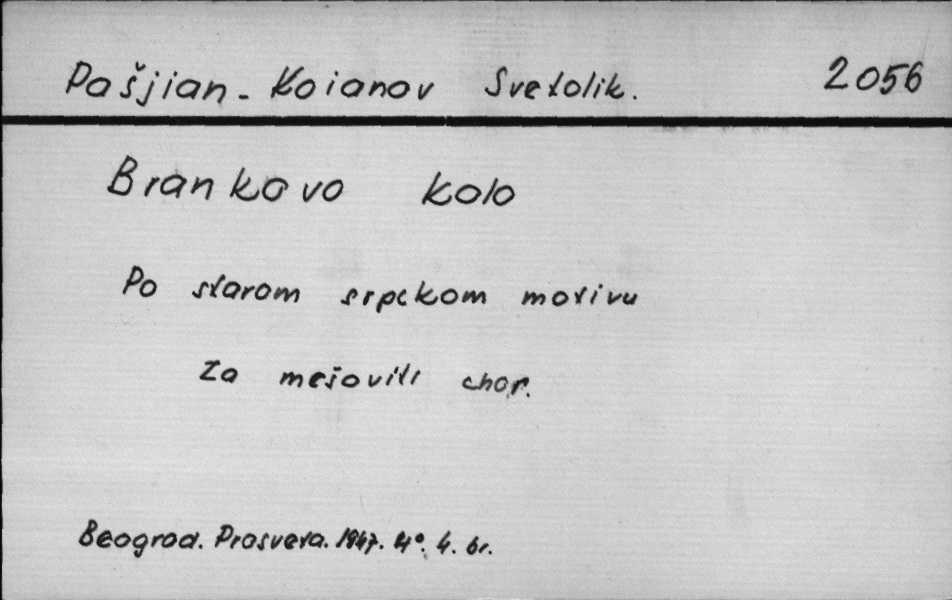 Pašjian-Koianov Svetolik. 2056
Brankovo kolo
Po starom srpskom motivu
Za mešoviti chor.
Beograd. Prosveta. 1947. 4°. 4. br.